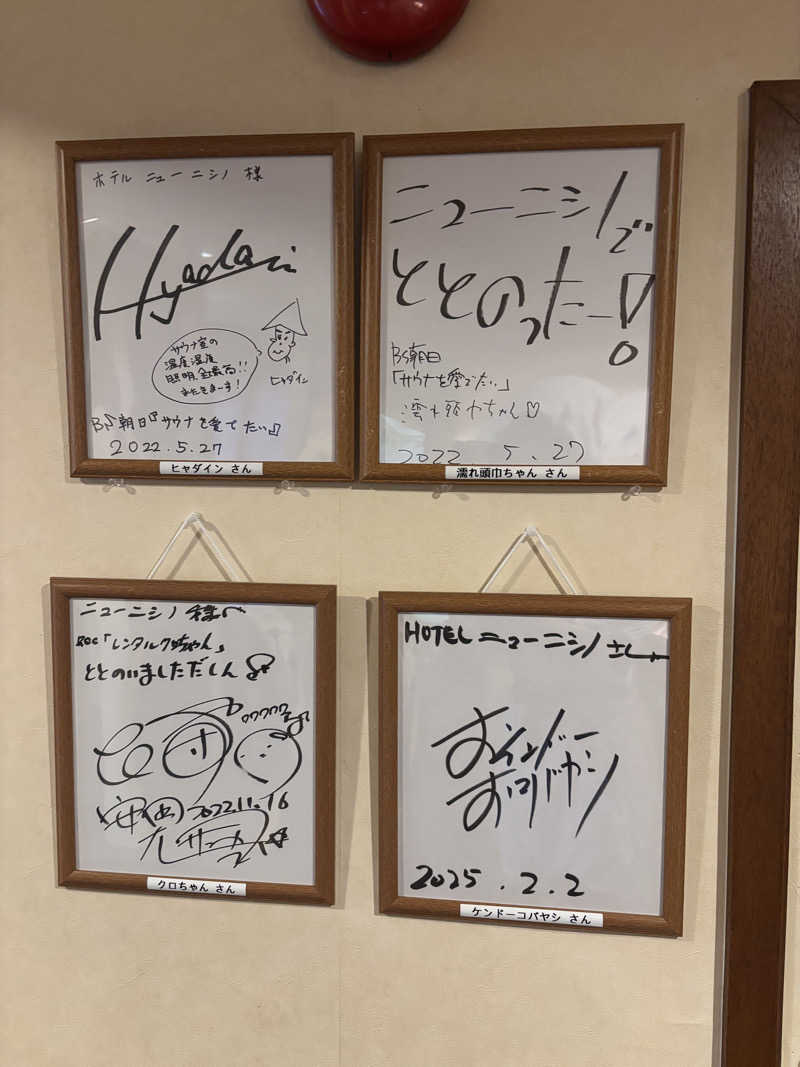 ホテル ニューニシノ 様
Hyadain
サウナ室の
温度湿度
照明全最高!!
またきまーす!
ヒャダイン
BS朝日『サウナを愛でたい』
2022.5.27
ヒャダイン さん
ニューニシノで
ととのったー!
BS朝日
「サウナを愛でたい」
濡れ頭巾ちゃん♡
2022 5.27
濡れ頭巾ちゃん さん
ニューニシノ 様へ
「レンタルクロちゃん」
ととのいましただしん
ワワワワ
安田
2022.11.16
クロちゃん さん
HOTEL ニューニシノ さん
2025.2.2
ケンドーコバヤシ さん